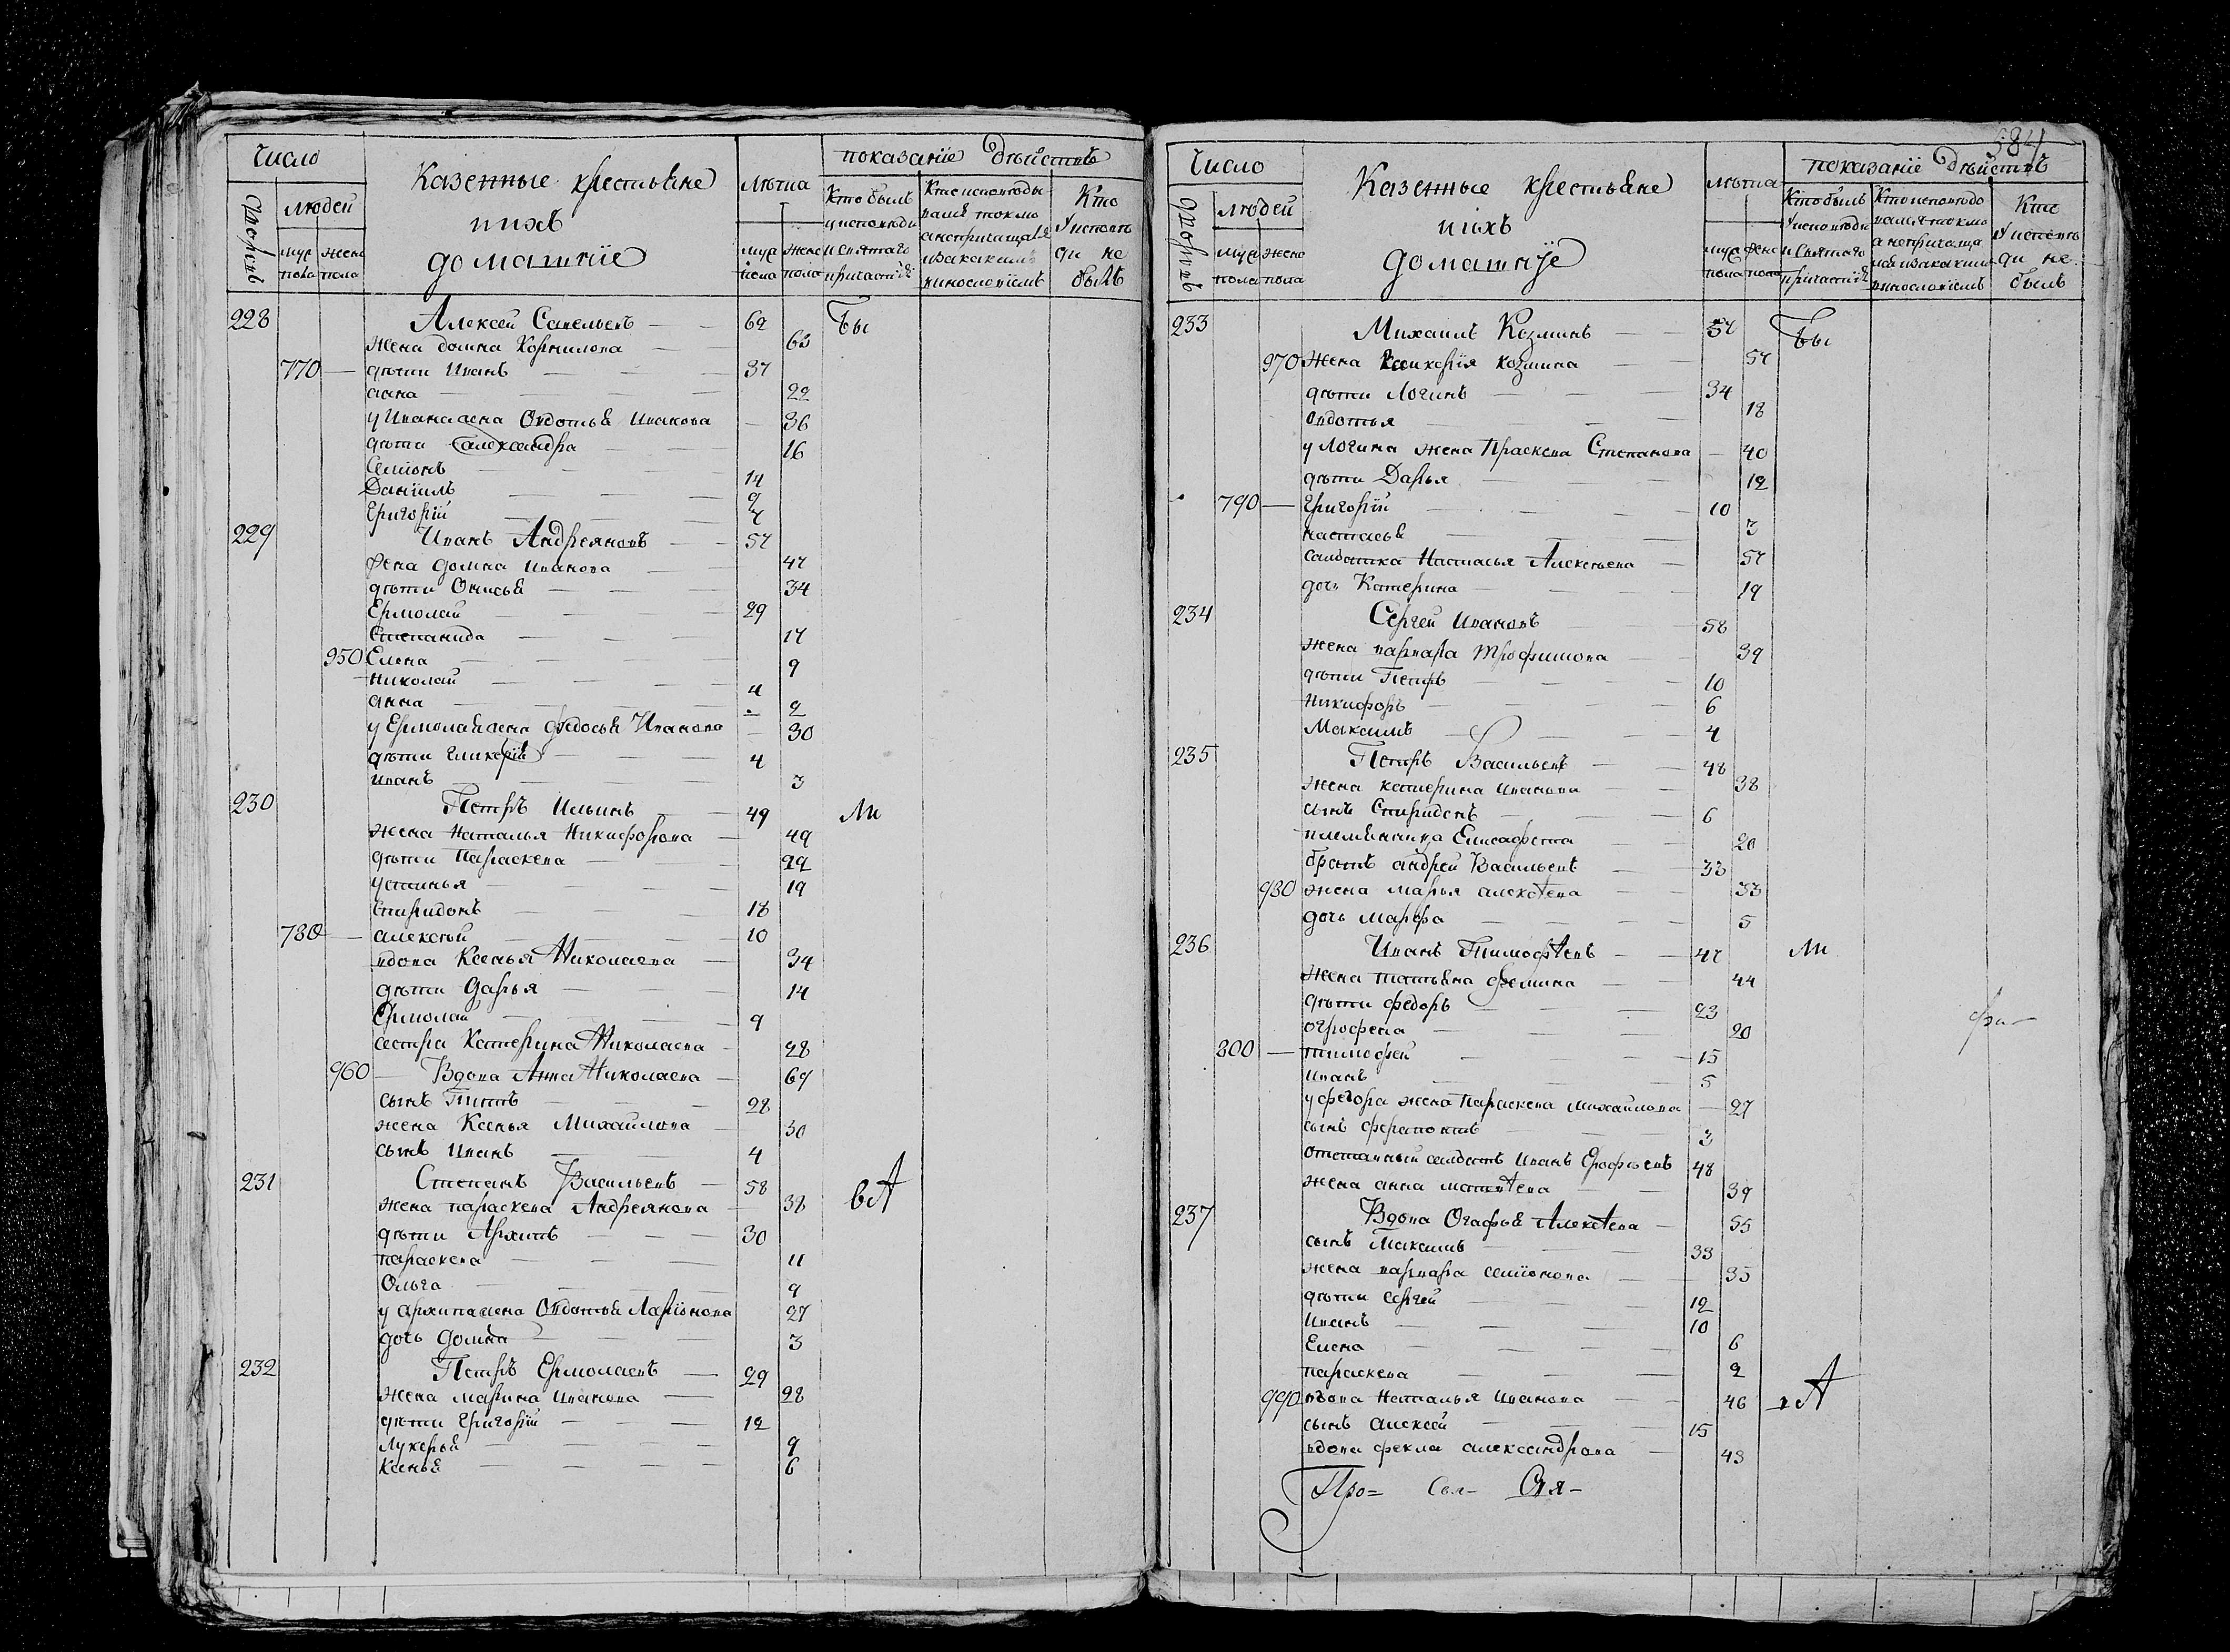 Число
Казенные крестьяне
ихъ
домашнiе
Лѣта
показанiе дѣйствъ
дворовъ
людей
муж
пола
жено
пола
муж
пола
жено
пола
Кто былъ
у исповѣди
и святаго
причастiя
Кто исповѣды
вался токмо
а не причащался
и за какимъ
винословiемъ
Кто
у исповѣ
ди не
былъ
228 Алексей Савельевъ — 62 Бы
жена домна Корнилова — 63
770 — дѣти Иванъ — 37
анна — 22
у Ивана жена Овдотья Ивакова — 36
дѣти Александра — 16
Семionъ — 14
Данiилъ — 9
Григорiй — 7
229 Иванъ Андреяновъ — 57
жена домна иванова — 47
дѣти Онисья — 34
Ермолай — 29
Степанида — 17
950 Елена — 9
николай — 4
анна — 2
у Ермолая жена федосья Иванова — 30
дѣти гликерiй — 4
иванъ — 3
230 Петръ Ильинъ — 49 ли
жена Наталья Никифорова — 49
дѣти Параскева — 22
устинья — 19
спиридонъ — 18
780 — алексѣй — 10
вдова Ксенья Николаева — 34
дѣти Дарья — 14
Ермолай — 9
сестра Катерина Николаева — 28
960 — Вдова Анна Николаева — 67
сынъ Титъ — 28
жена Ксенья Михайлова — 30
сынъ иванъ — 4
231 Степанъ Васильевъ — 58 вА
жена параскева Андреянова — 38
дѣти Архипъ — 30
параскева — 11
Ольга — 9
у архипа жена Овдотья Ларiонова 27
дочь домна — 3
232 Петръ Ермолаевъ — 29
жена марина иванова — 28
дѣти григорiй — 12
Лукерья — 9
ксенья — 6
584
Число
Казенные крестьяне
ихъ
домашнiе
лѣта
показанiе дѣйствъ
дворовъ
людей
муж
пола
жено
пола
муж
пола
жено
пола
Кто былъ
у исповѣди
и святаго
причастiя
Кто исповѣдо
вался токмо
а не прича-ща
лся и за какимъ
винословiемъ
Кто
у исповѣ
ди не
былъ
233 Михаилъ Козминъ — 57 Бы
970 жена Гликерiя козмина — 57
дѣти Логинъ — 34
овдотья — 18
у Логина жена Праскева Степанова — 40
дѣти Дарья — 12
790 — Григорiй — 10
настасья — 3
салдатка Наталья Алексѣева — 57
дочь Катерина — 19
234 Сергей Ивановъ — 58
жена варвара трофимова — 39
дѣти Петръ — 10
никифоръ — 6
Максимъ — 4
235 Петръ Васильевъ — 48
жена катерина иванова — 38
сынъ Спиридонъ — 6
племянница Елисафета — 20
братъ андрей Васильевъ — 33
980 жена марья алексѣева — 33
дочь марфа — 5
236 Иванъ Тимофѣевъ — 47 ли
жена татьяна фомина — 44
дѣти федоръ — 23
огрофена — 20
фи-
800 — тимофей — 15
иванъ — 5
у федора жена параскева михайлова — 27
сынъ ферапонтъ — 3
отставный салдатъ иванъ Ерофѣевъ 48
жена анна матвѣева — 39
237 Вдова Огафья Алексѣева — 55
сынъ Максимъ — 33
жена варвара семionова — 35
дѣти сергей — 12
иванъ — 10
Елена — 6
параскева — 2
990 вдова Наталья иванова — 46 А
сынъ алексей — 15
вдова фекла александрова — 43
Про=